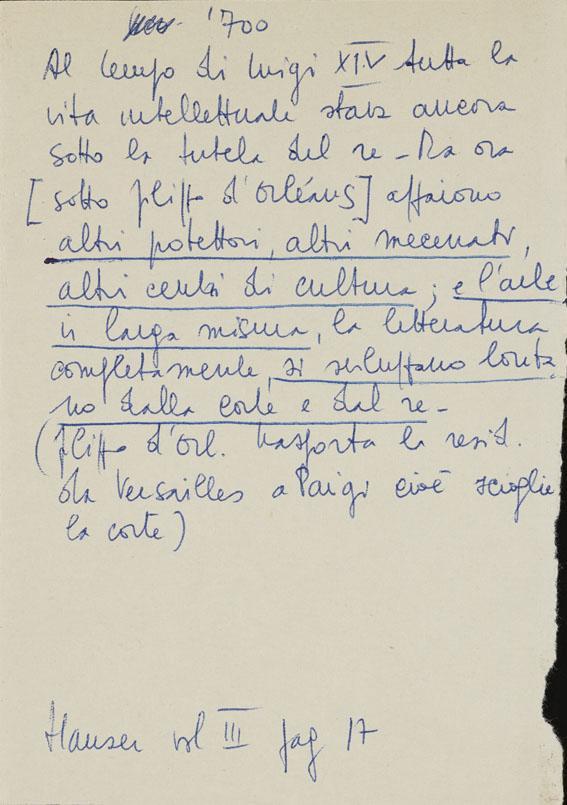 '700
Al tempo di Luigi XIV tutta la
vita intellettuale stava ancora
sotto la tutela del re - Ma ora
[sotto Filippo d'Orléans] appaiono
altri protettori, altri mecenati,
altri centri di cultura; e l'arte
in larga misura, la letteratura
completamente, si sviluppano lonta
no dalla corte e dal re -
(Filippo d'Orl. trasporta la resid.
da Versailles a Parigi cioè scioglie
la corte)
Hauser vol III pag 17